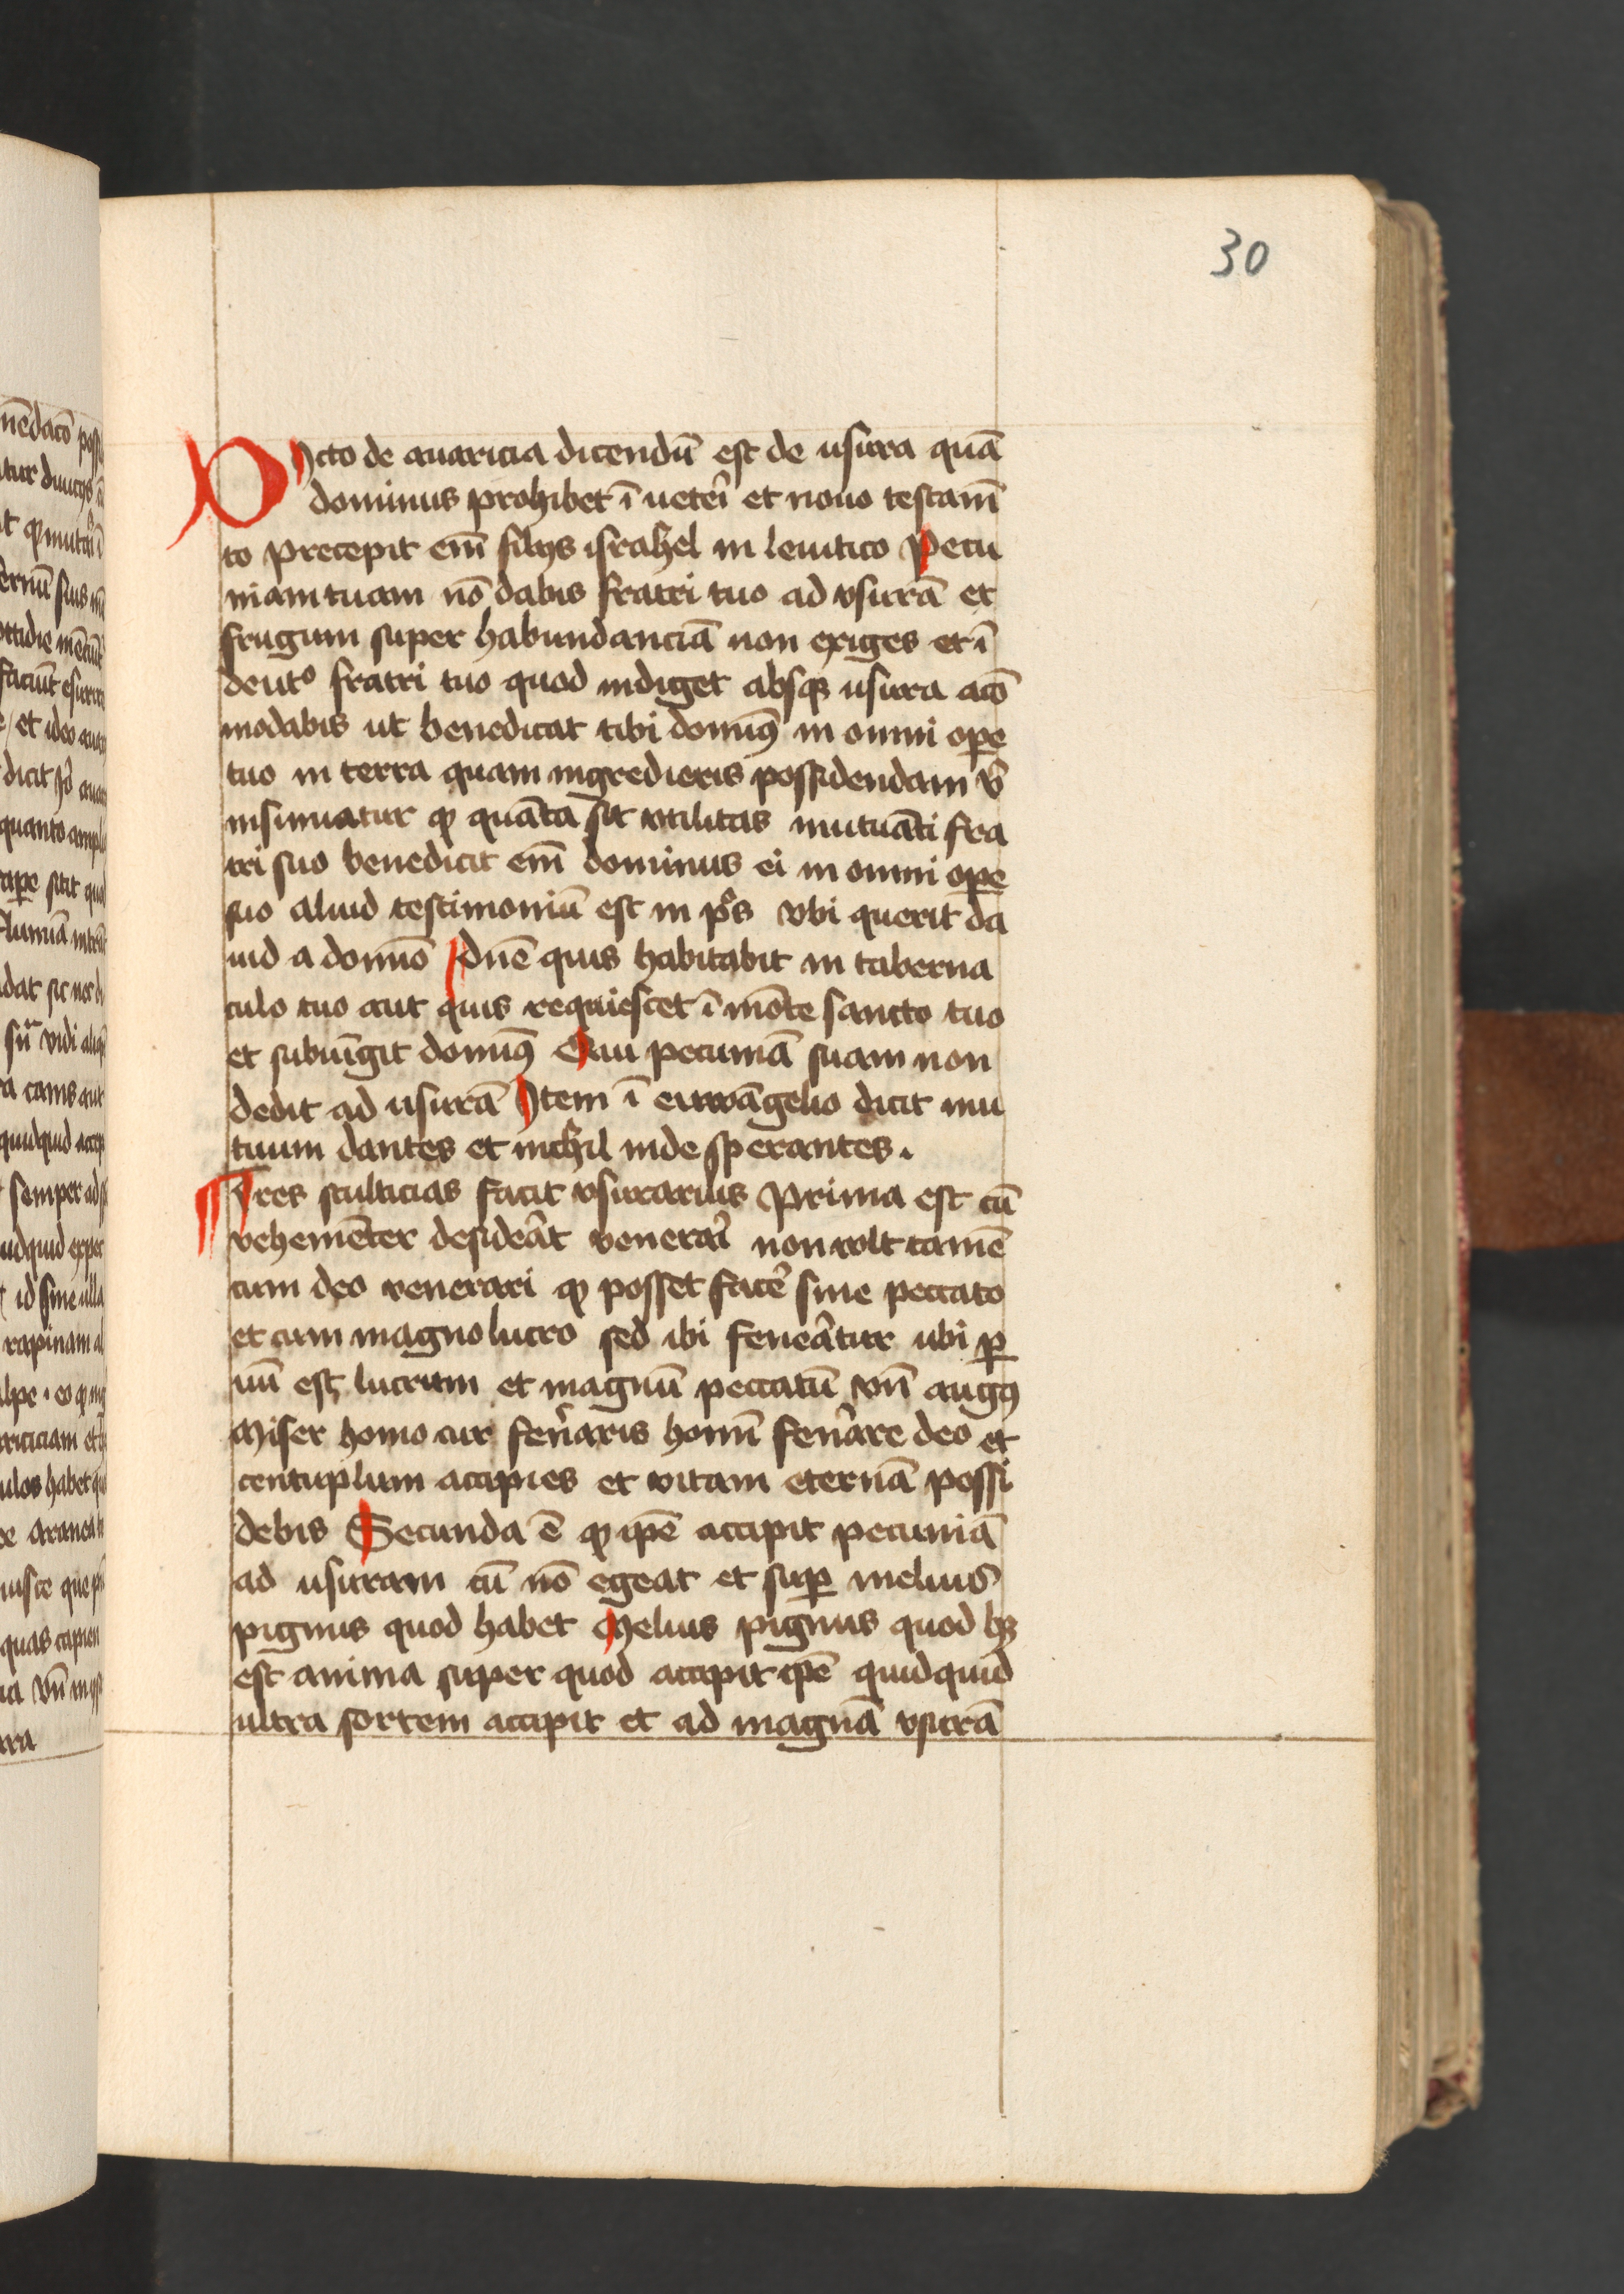 30
Dicto de auaricia dicendū est de usura quā
dominus prohibet ī ueteri et nouo testam̄
to precepit em̄ filijs israhel in leuitico Pecu
niam tuam nō dabis fratri tuo ad vsurā et
frugum super habundanciā non exiges et ī
deut⁰ fratri tuo quod indiget absq; usura acō
modabis ut benedicat tibi domin9 in omni ope
tuo in terra quam ingredieris possidendam vˀ
insinuatur qͦ quāta sit vtilitas mutuāti fra
tri suo benedicit em̄ dominus ei in omni ope
suo aliud testimoniū est in pˢs vbi querit da
uid a domīo dn̄e quis habitabit in taberna
culo tuo aut quis requiescet ī mōte sancto tuo
et subiūgit domin9 Qui pecuniā suam non
dedit ad usurā Item ī euwāgelio dicit mu
tuum dantes et nichil inde sperantes.
Tres stulticias facit vsurarius Prima est cū
vehemēter desideāt venerari non volt tamē
cum deo venerari qͦ posset facē sine peccato
et cum magno lucro sed ibi feneātur ubi p
uū est lucrum et magnū peccatū vn̄ aug9
Miser homo cur fen̄aris homī fen̄are deo et
centuplum accipies et vitam eternā possi
debis Secunda ē qͦ ip̄e accipit pecuniā
ad usuram cū nō egeat et sup melius
pignus quod habet Melius pignus quod hꝫ
est anima super quod accipit ip̄e quidquid
ultra sortem accipit et ad magnā vsurā